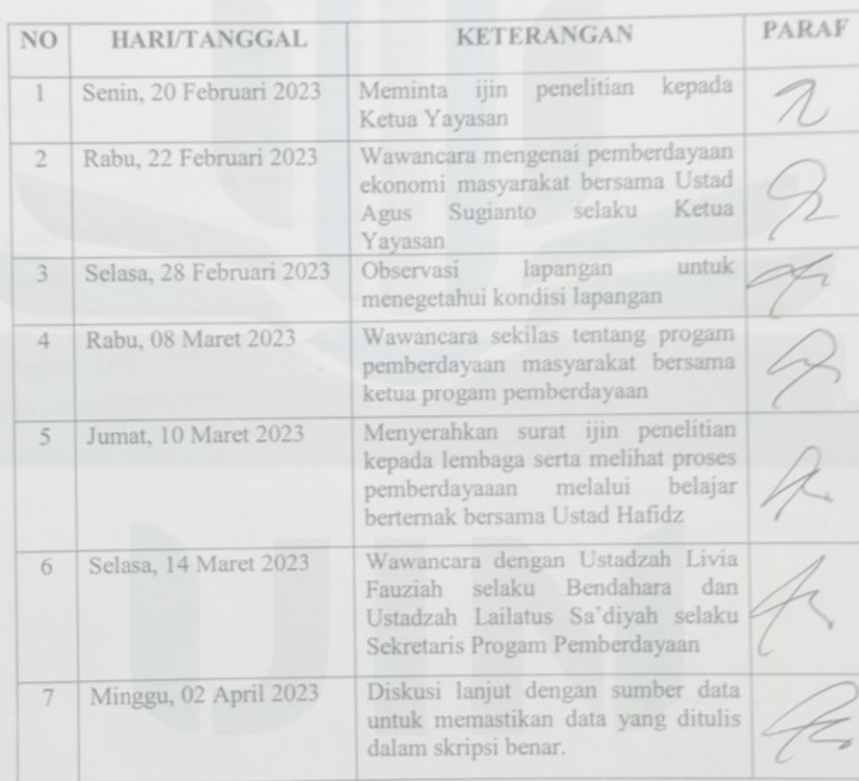 NO HARI/TANGGAL KETERANGAN PARAF
1 Senin, 20 Februari 2023 Meminta ijin penelitian kepada
Ketua Yayasan
2 Rabu, 22 Februari 2023 Wawancara mengenai pemberdayaan
ekonomi masyarakat bersama Ustad
Agus Sugianto selaku Ketua
Yayasan
3 Selasa, 28 Februari 2023 Observasi lapangan untuk
menegetahui kondisi lapangan
4 Rabu, 08 Maret 2023 Wawancara sekilas tentang progam
pemberdayaan masyarakat bersama
ketua progam pemberdayaan
5 Jumat, 10 Maret 2023 Menyerahkan surat ijin penelitian
kepada lembaga serta melihat proses
pemberdayaaan melalui belajar
berternak bersama Ustad Hafidz
6 Selasa, 14 Maret 2023 Wawancara dengan Ustadzah Livia
Fauziah selaku Bendahara dan
Ustadzah Lailatus Sa'diyah selaku
Sekretaris Progam Pemberdayaan
7 Minggu, 02 April 2023 Diskusi lanjut dengan sumber data
untuk memastikan data yang ditulis
dalam skripsi benar.
UIN